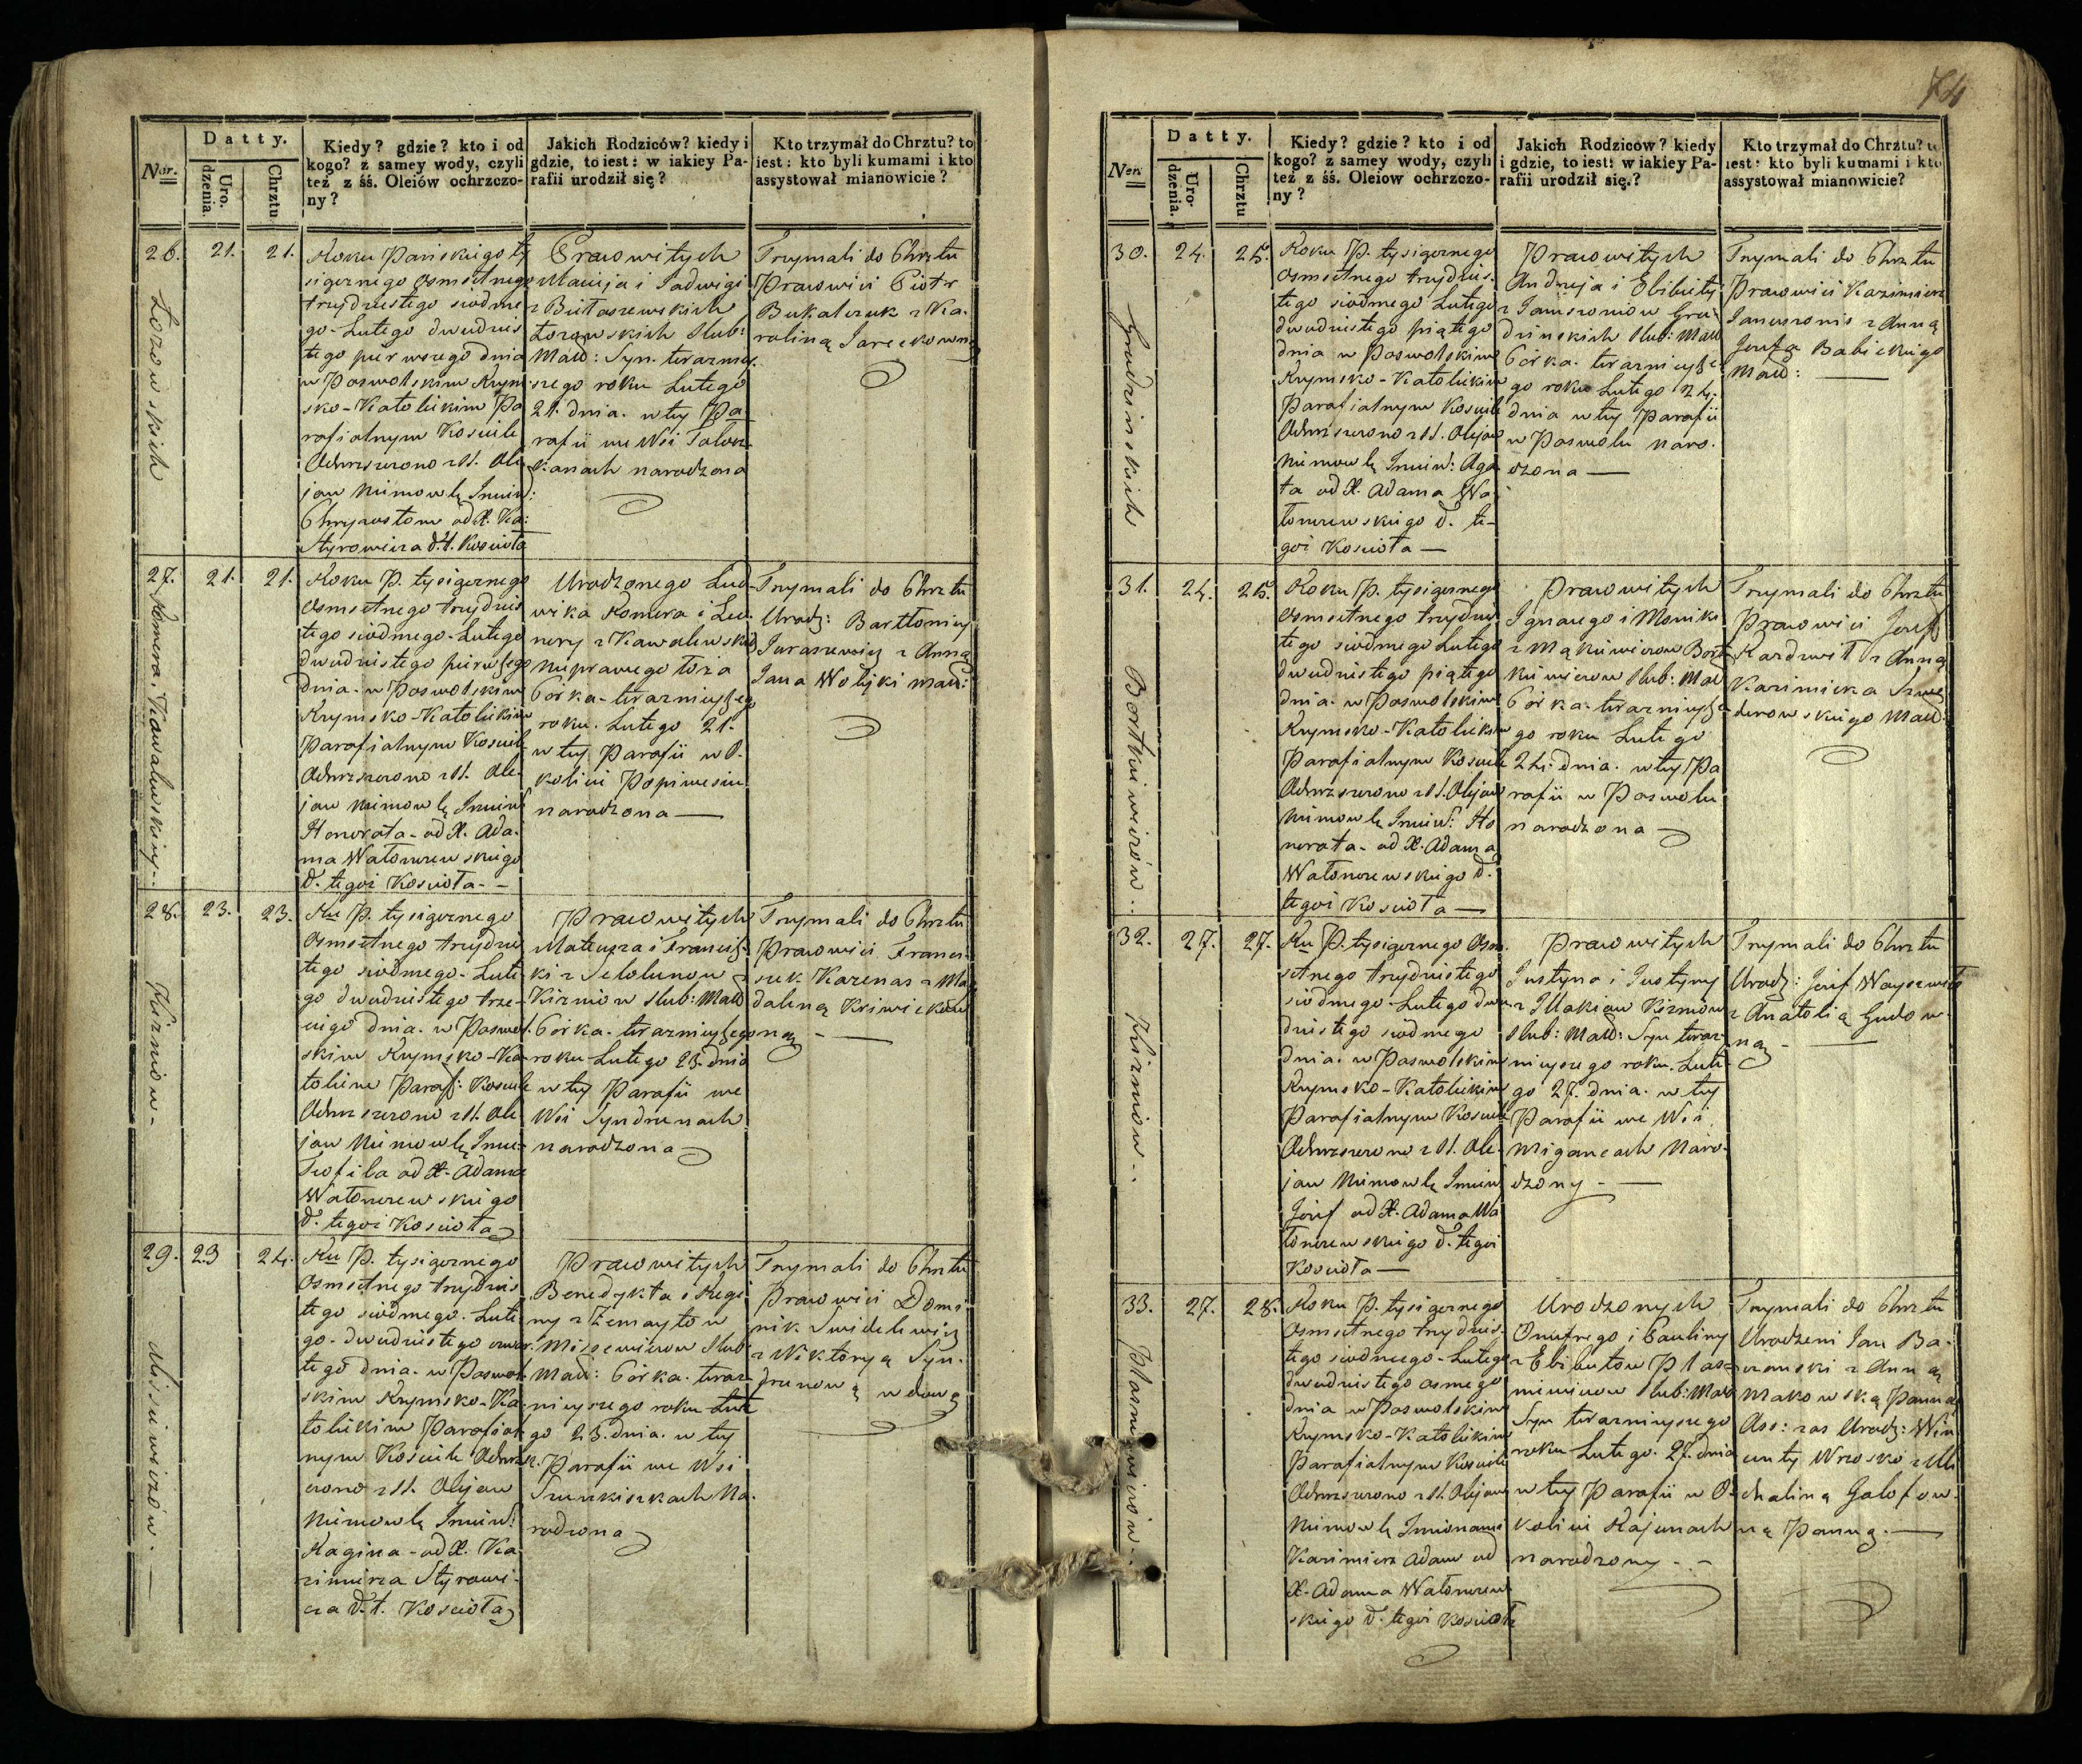 Datty.
Nør.
Uro-
dzenia.
Chrztu
Kiedy? gdzie? kto i od
kogo? z samey wody, czyli
też z śś. Oleiów ochrzczo-
ny?
Jakich Rodziców? kiedy i
gdzie, to iest: w iakiey Pa-
rafii urodził się?
Kto trzymał do Chrztu? to
iest: kto byli kumami i kto
assystował mianowicie?
26.
21.
21.
Łozowskich
Roku Pańskiego ty
siącznego Osmsetnego
trzydziestego siodme
go Lutego dwudzies
tego pierwszego dnia
w Poswolskim Rzym
sko-Katolickim Pa
rafialnym Kosciele
Ochrzczono z SS. Ole
jow Niemowlę Imien:
Chryzostom od X. Ka:
Styrowicza d. t. Kościoła
Prawowitych
Macieja i Jadwigi
z Butaszewskich
Łozowskich Slub:
Małż: Syn. terazniey
szego roku Lutego
21. dnia. w tey Pa
rafii we Wsi
narodzona
Trzymali do Chrztu
Prawowici Piotr
Bukalczuk z Ka-
roliną Jareckowną
27.
21.
21.
Romera. Kawalewskiey..
Roku P. tysiącznego
Osmsetnego trzydzies
tego siodmego Lutego
dwudziestego pierwszego
dnia w Poswolskim
Rzymsko-Katolickim
Parafialnym Kosciele
Ochrzczono z SS. Ole-
jow Niemowlę Imien:
Honorata od X. Ada-
ma Wałonczewskiego
d. tegoż Kościoła
Urodzonego Lud-
wika Romera i Leo-
nory z Kawalewskich
nieprawego łoża
Córka teraznieyszego
roku Lutego 21.
w tey Parafii w O-
kolicy Popiwesiu
narodzona
Trzymali do Chrztu
Urodz: Bartłomiey
Juraszewicz z Anną
Jana Wotyki małż:
28.
23.
23.
Kirniow
Ru P. tysiącznego
Osmsetnego trzydzies
tego siodmego Lute
go dwudziestego trze-
ciego dnia w Poswol
skim Rzymsko-Ka-
tolickim Paraf: Kosciele
Ochrzczono z SS. Ole
jow Niemowlę Imie:
Teofila od X. Adama
Wałonczewskiego
d. tegoż Kościoła
Prawowitych
Mateusza i Francisz-
ki z
Kirniow Slub: Małż
Córka teraznieyszego
roku Lutego 23. dnia
w tey Parafii we
Wsi Syndrunach
narodzona
Trzymali do Chrztu
Prawowici Franci-
szek Karenas z Ma
daleną Kriwickow
ną
29.
23
24.
Misiewiczów.
Ru P. tysiącznego
Osmsetnego trzydzies
tego siodmego Lute
go dwudziestego czwar
tego dnia w Poswol
skim Rzymsko-Ka-
tolickim Parafial
nym Kosciele Ochrz
czono z SS. Olejow
Niemowlę Imien:
Ragina od X. Ka
zimierza Styrowi-
cza d. t. Kościoła
Prawowitych
Benedykta i Regi
ny z Żemaytow
Misiewiczow Slub
Małż: Córka teraz
nieyszego roku Lute
go 23. dnia w tey
Parafii we Wsi
Na-
rodzona
Trzymali do Chrztu
Prawowici Domi
nik Swidelewicz
z Wiktoryą Syn-
drunową wdową
74
Datty.
Nør.
Uro-
dzenia.
Chrztu
Kiedy? gdzie? kto i od
kogo? z samey wody, czyli
też z śś. Oleiow ochrzczo-
ny?
Jakich Rodziców? kiedy
i gdzie, to iest: w iakiey Pa-
rafii urodził się?
Kto trzymał do Chrztu? to
iest: kto byli kumami i kto
assystował mianowicie?
30.
24.
25.
Grudzinskich
Roku P. tysiącznego
Osmsetnego trzydzies-
tego siodmego Lutego
dwudziestego piątego
dnia w Poswolskim
Rzymsko-Katolickim
Parafialnym Kosciele
Ochrzczono z SS. Olejow
Niemowlę Imien: Aga
ta od X. Adama Wa
łonczewskiego d. te-
goż Kościoła
Prawowitych
Andrzeja i Elżbiety
z Januszoniow Gru-
dzinskich Slub: Małż
Córka teraznieysze-
go roku Lutego 24.
dnia w tey Parafii
w Poswolu naro-
dzona
Trzymali do Chrztu
Prawowici Kazimierz
Januszonis z Anną
Jozefa Babickiego
Małż:
31.
24.
25.
Bortkiewiczów..
Roku P. tysiącznego
Osmsetnego trzydzies
tego siodmego Lutego
dwudziestego piątego
dnia w Poswolskim
Rzymsko-Katolickim
Parafialnym Kosciele
Ochrzczono z SS. Olejow
Niemowlę Imien: Ho
norata od X. Adama
Wałonczewskiego d.
tegoż Kościoła
Prawowitych
Ignacego i Moniki
z Mąkiewiczow Bort
kiewiczow Slub: Małż
Córka teraznieysze
go roku Lutego
24. dnia w tey Pa
rafii w Poswolu
narodzona
Trzymali do Chrztu
Prawowici Jozef
z Anną
Kazimierza Szwey
derowskiego Małż:
32.
27.
27.
Kirniow..
Ru P. tysiącznego Osm
setnego trzydziestego
siodmego Lutego dwu
dziestego siodmego
dnia w Poswolskim
Rzymsko-Katolickim
Parafialnym Kosciele
Ochrzczono z SS. Ole-
jow Niemowlę Imien
Jozef od X. Adama Wa
łonczewskiego d. tegoż
Kościoła
Prawowitych
Justyna i Justyny
z Kirniow
Slub: Małż: Syn teraz
nieyszego roku Lute
go 27. dnia w tey
Parafii we Wsi
Migancach Naro-
dzony
Trzymali do Chrztu
Urodz: Jozef
z Anatolią Gudow-
ną
33.
27.
28.
Plasniewiczow..
Roku P. tysiącznego
Osmsetnego trzydzies-
tego siodmego Lutego
dwudziestego osmego
dnia w Poswolskim
Rzymsko-Katolickim
Parafialnym Kosciele
Ochrzczono z SS. Olejow
Niemowlę Imionami
Kazimierz Adam od
X. Adama Wałonczew
skiego d. tegoż Kościoła
Urodzonych
Onufrego i Pauliny
z
Slub: Małż
Syn teraznieyszego
roku Lutego 27. dnia
w tey Parafii w O-
kolicy Rajunach
narodzony
Trzymali do Chrztu
Urodzeni Jan Ba-
z Anną
Makowską Panną
Ass: zas Urodz: Win
centy Wrosko z Mi
chaliną
ną Panną.